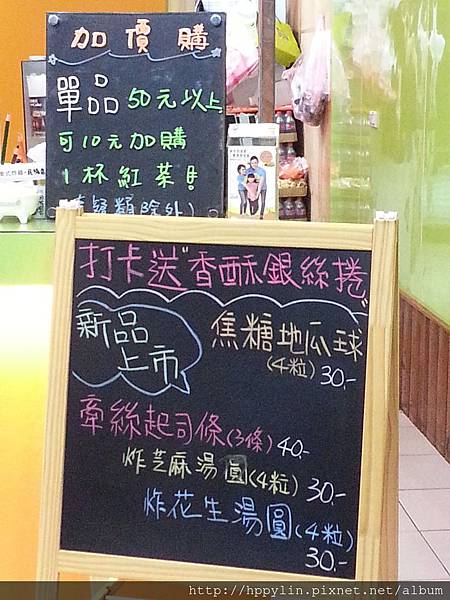 加價購
單品 50元以上
可10元加購
1杯紅茶
餐類除外)
打卡送"香酥銀絲捲"
新品
上市
焦糖地瓜球
(4粒) 30.-
牽絲起司條(3條) 40.-
炸芝麻湯圓(4粒) 30.-
炸花生湯圓(4粒)
30.-
http://hppylin.pixnet.net/album